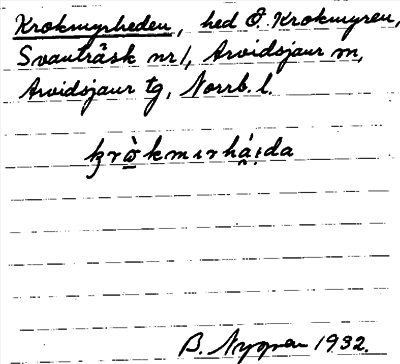 Krokmyrheden, hed Ö. Krokmyren,
Svanträsk nr 1, Arvidsjaur sn,
Arvidsjaur tg, Norrb. l.
kròkmιrhá̤ι̣da
B. Nygren 1932.